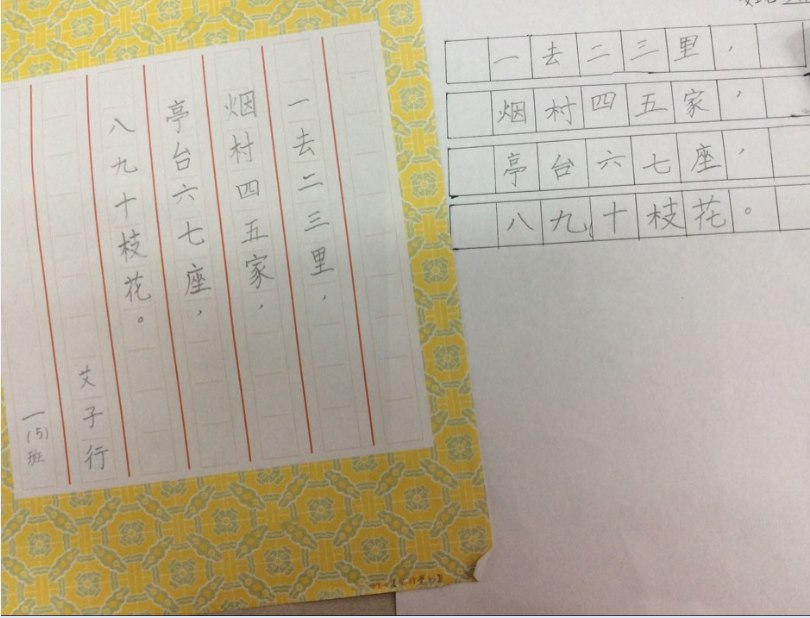 一去二三里，
烟村四五家，
亭台六七座，
八九十枝花。
艾子行
一(5)班
一去二三里，
烟村四五家，
亭台六七座，
八九十枝花。